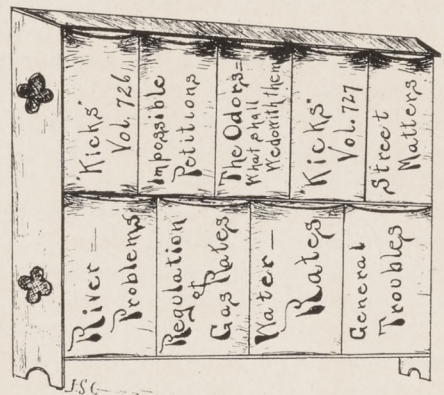 "Kicks"
Vol. 726
Impossible
Petitions
The Odors=
What shall
We do with them
"Kicks"
Vol. 727
Street
Matters
River—
Problems
Regulation
of
Gas Rates
Water—
Rates
General
Troubles